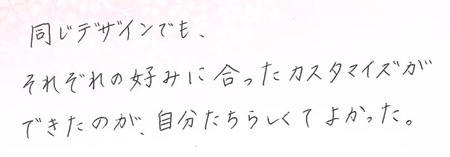 同じデザインでも、
それぞれの好みに合ったカスタマイズが
できたのが、自分たちらしくてよかった。